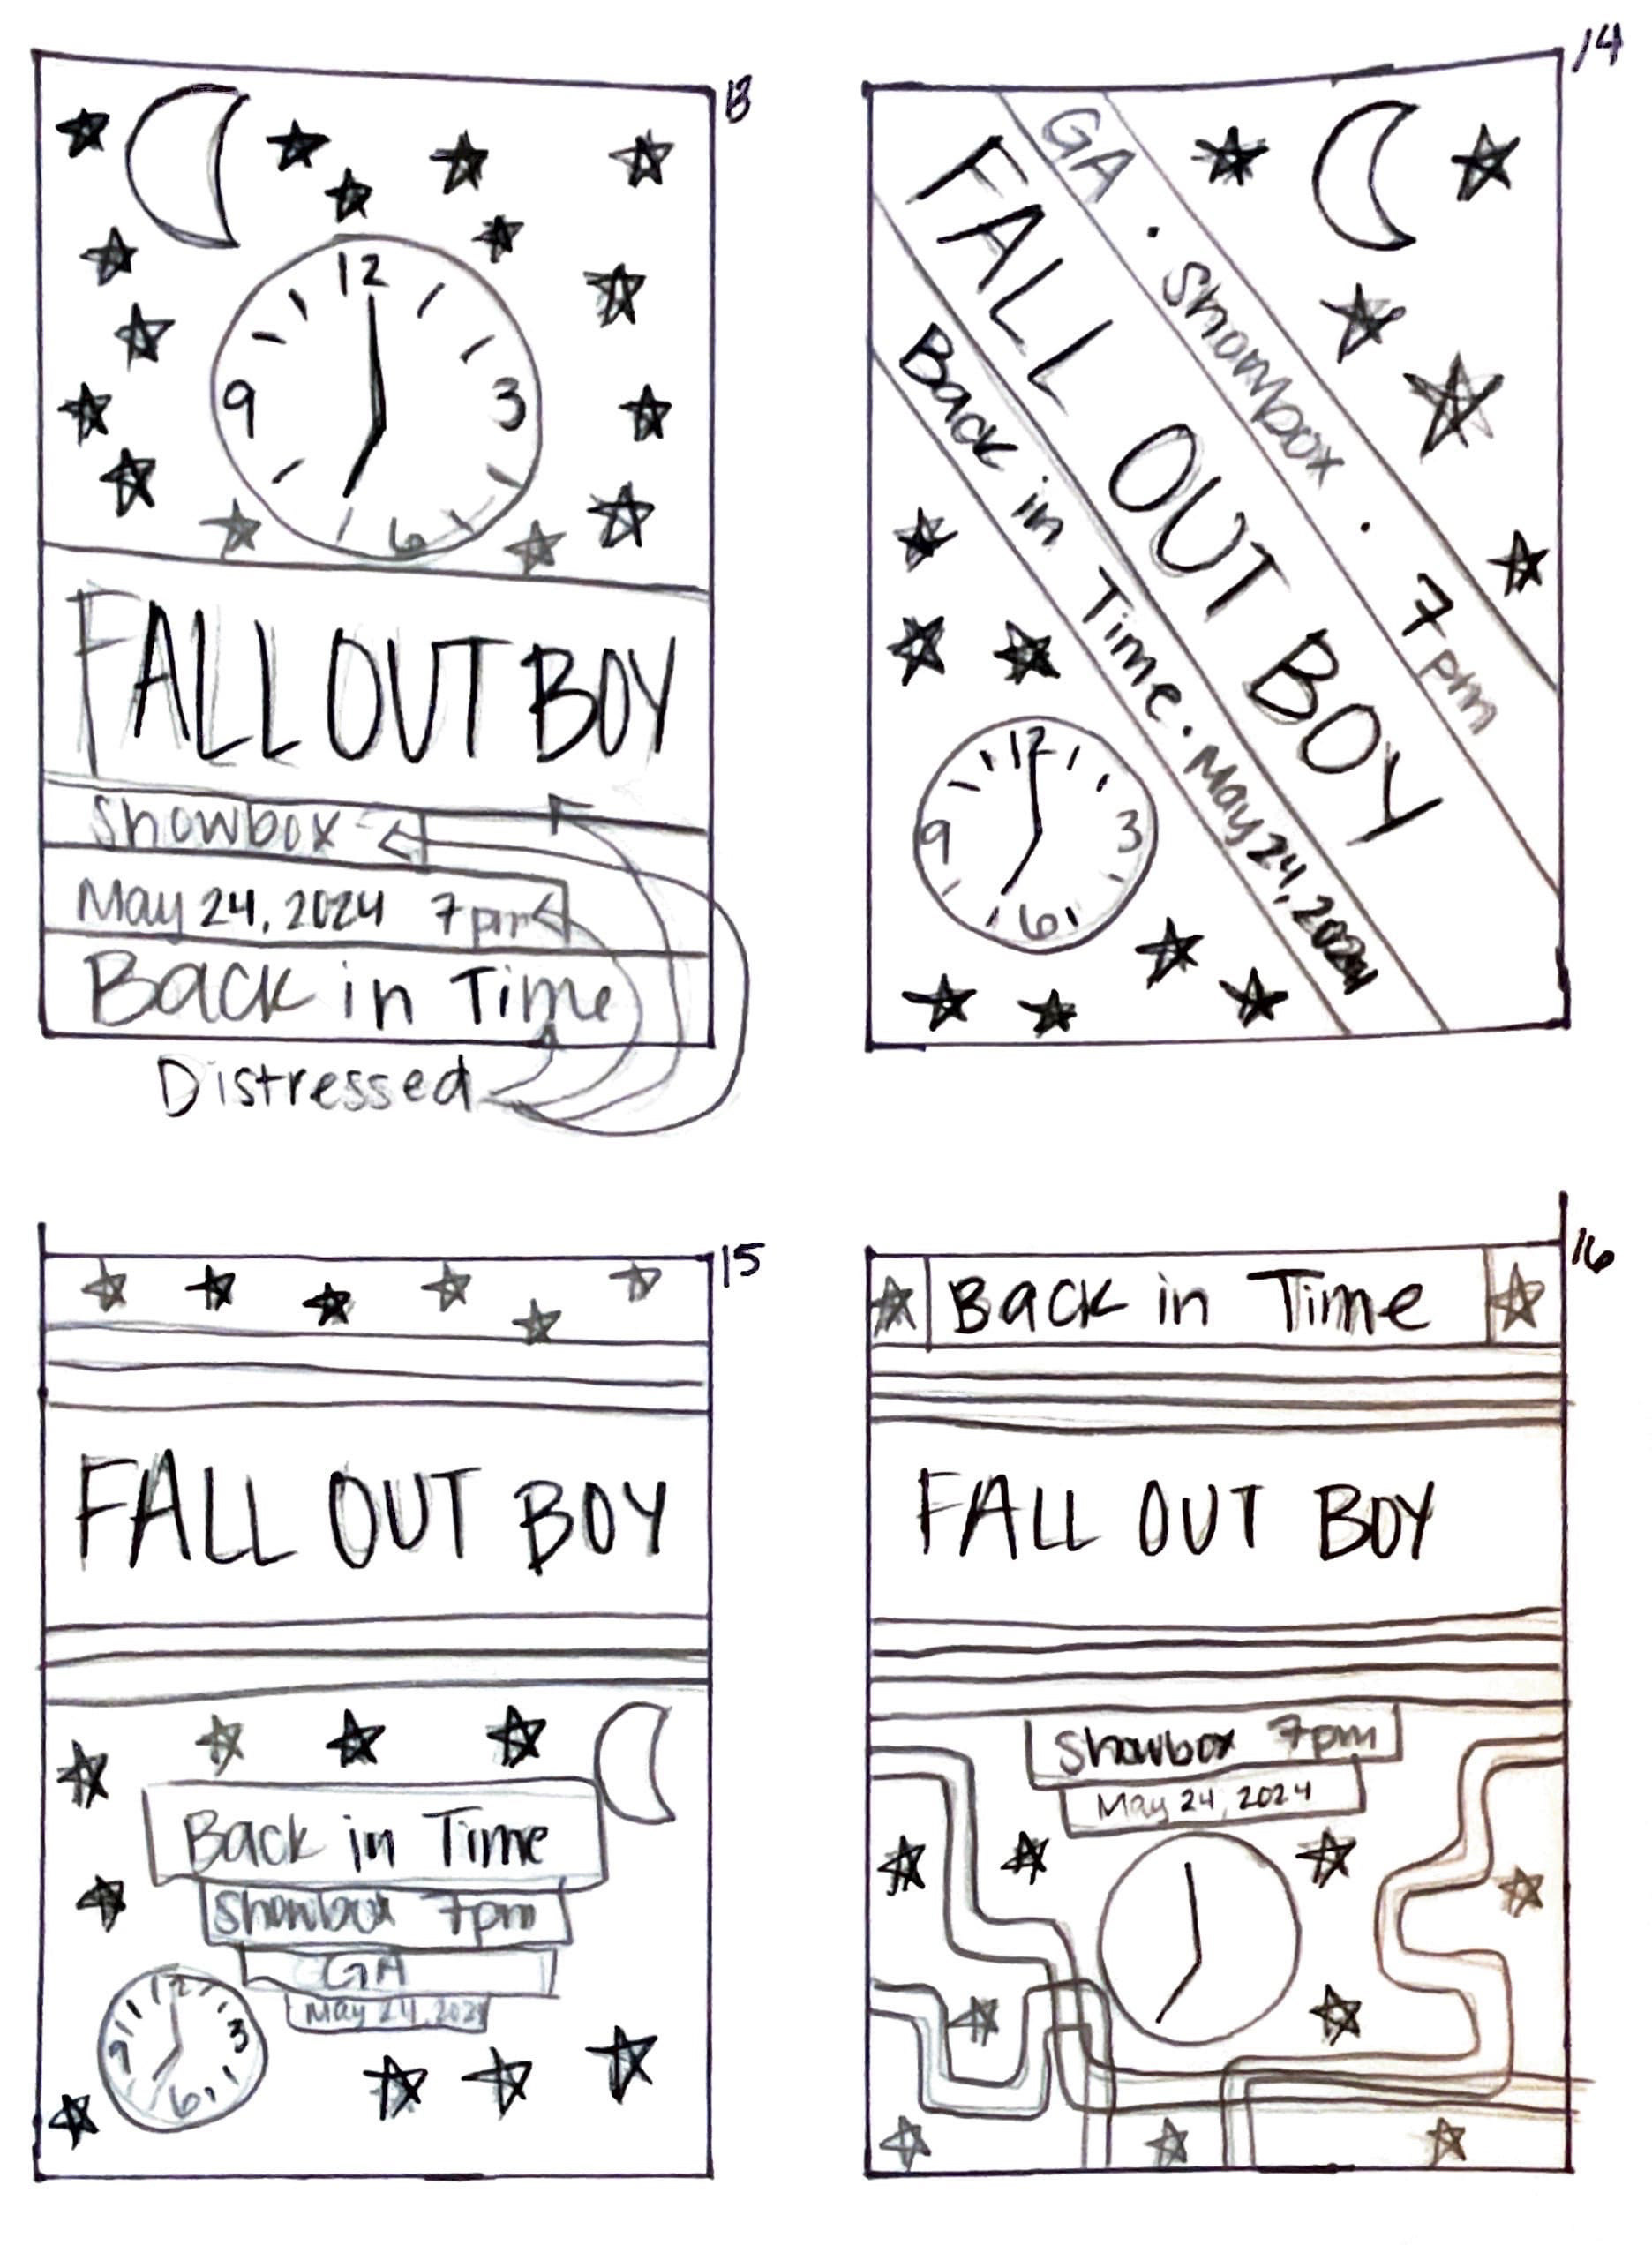 13
12
9
3
6
FALL OUT BOY
Showbox
May 24, 2024 7pm
Back in Time
Distressed
14
GA · Showbox · 7pm
FALL OUT BOY
Back in Time · May 24, 2024
12
9
3
6
15
FALL OUT BOY
Back in Time
Showbox 7pm
GA
May 24, 2024
12
9
3
6
16
Back in Time
FALL OUT BOY
Showbox 7pm
May 24, 2024